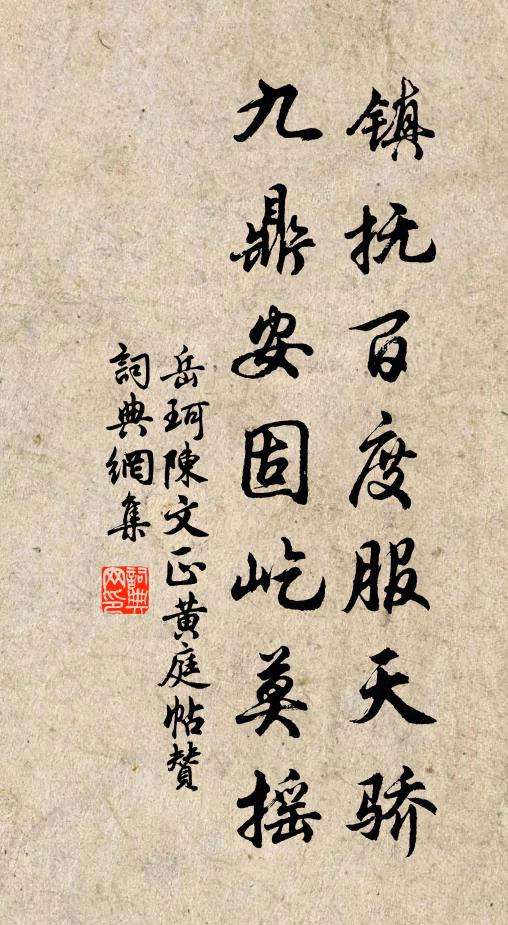 镇抚百度服天骄
九鼎安固屹莫摇
岳珂陳文正黄庭帖賛
詞典網集
詞典
网印